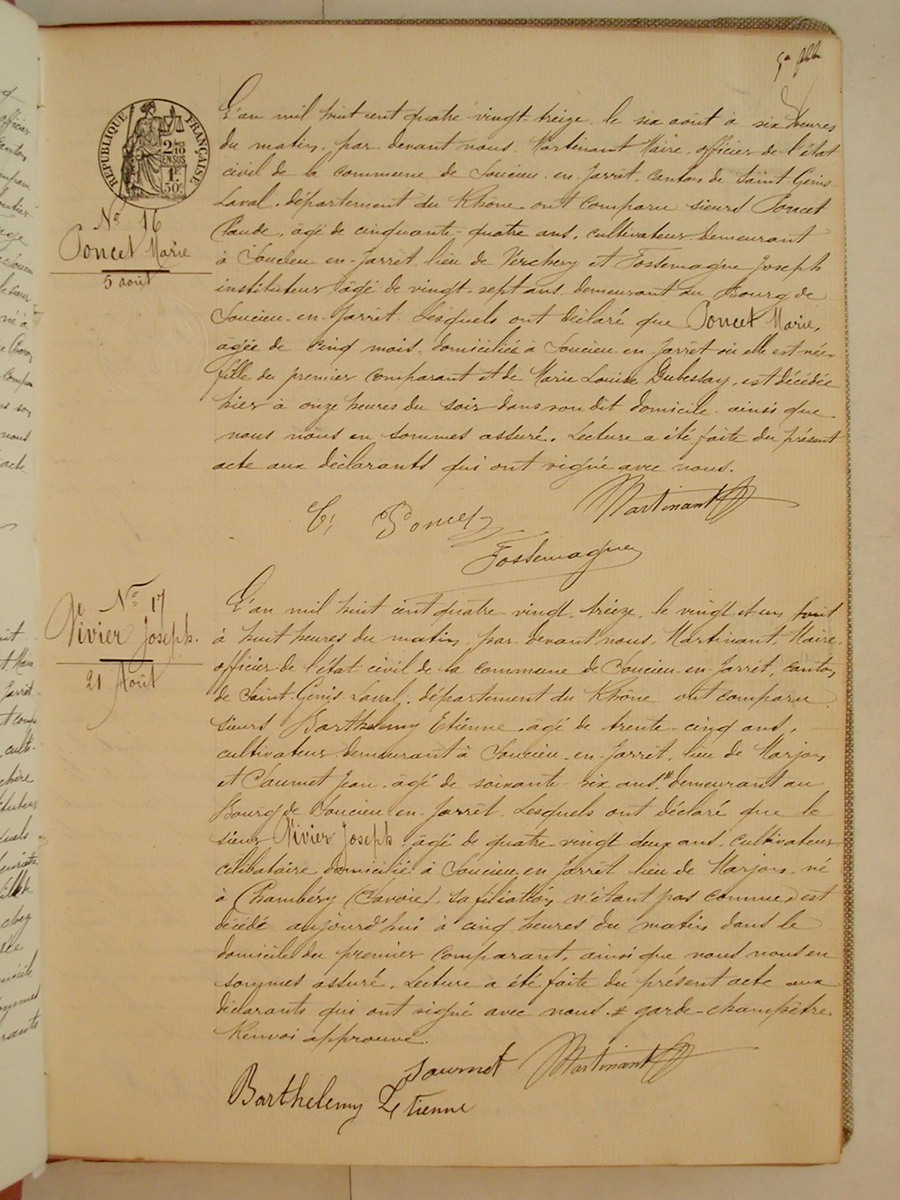 RÉPUBLIQUE FRANÇAISE
2/10 EN SUS
1F 50c
L'an mil huit cent quatre vingt treize, le six août à six heures
du matin, par devant nous, Martinant Maire, officier de l'état
civil de la commune de Soucieu-en-Jarret, canton de Saint-Genis
Laval, département du Rhône ont comparu sieurs Poncet
Claude, âgé de cinquante-quatre ans, cultivateur demeurant
à Soucieu-en-Jarret, lieu de Verchery et Fossemagne Joseph
instituteur âgé de vingt-sept ans, demeurant au Bourg de
Soucieu-en-Jarret. Lesquels ont déclaré que Poncet Marie,
âgée de cinq mois, domiciliée à Soucieu-en-Jarret où elle est née,
fille du premier comparant et de Marie Louise Dubessay, est décédée
hier à onze heures du soir dans son dit domicile, ainsi que
nous nous en sommes assuré. Lecture a été faite du présent
acte aux déclarants qui ont signé avec nous.
No 16
Poncet Marie
5 août
Cl Poncet
Martinant
Fossemagne
No 17
Vivier Joseph.
21 Août
L'an mil huit cent quatre-vingt-treize, le vingt et un août
à huit heures du matin, par devant nous, Martinant Maire,
officier de l'état civil de la commune de Soucieu-en-Jarret, canton
de Saint-Genis-Laval, département du Rhône ont comparu
sieurs Barthelemy Etienne, âgé de trente-cinq ans,
cultivateur demeurant à Soucieu-en-Jarret, lieu de Marjon
et Jean, âgé de soixante-six ans # demeurant au
Bourg de Soucieu-en-Jarret. Lesquels ont déclaré que le
sieur Vivier Joseph, âgé de quatre-vingt deux ans, cultivateur
célibataire domicilié à Soucieu-en-Jarret lieu de Marjon, né
à Chambéry (Savoie), sa filiation n'étant pas connue, est
décédé aujourd'hui à cinq heures du matin dans le
domicile du premier comparant, ainsi que nous nous en
sommes assuré. Lecture a été faite du présent acte aux
déclarants qui ont signé avec nous. # garde-champêtre.
Renvoi approuvé.
Martinant
Barthelemy Etienne